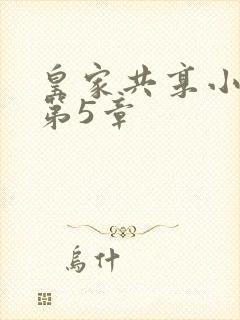 皇家共享小
第5章
烏什